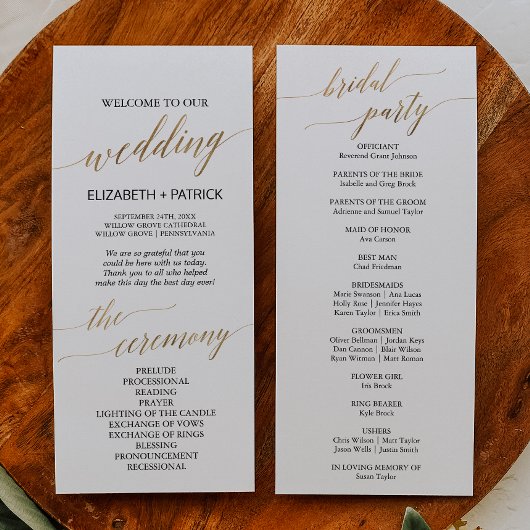 WELCOME TO OUR
wedding
ELIZABETH + PATRICK
SEPTEMBER 24TH, 20XX
WILLOW GROVE CATHEDRAL
WILLOW GROVE | PENNSYLVANIA
We are so grateful that you
could be here with us today.
Thank you to all who helped
make this day the best day ever!
the
ceremony
PRELUDE
PROCESSIONAL
READING
PRAYER
LIGHTING OF THE CANDLE
EXCHANGE OF VOWS
EXCHANGE OF RINGS
BLESSING
PRONOUNCEMENT
RECESSIONAL
bridal
party
OFFICIANT
Reverend Grant Johnson
PARENTS OF THE BRIDE
Isabelle and Greg Brock
PARENTS OF THE GROOM
Adrienne and Samuel Taylor
MAID OF HONOR
Ava Carson
BEST MAN
Chad Friedman
BRIDESMAIDS
Marie Swanson | Ana Lucas
Holly Rose | Jennifer Hayes
Karen Taylor | Erica Smith
GROOMSMEN
Oliver Bellman | Jordan Keys
Dan Cannon | Blair Wilson
Ryan Witmun | Matt Roman
FLOWER GIRL
Iris Brock
RING BEARER
Kyle Brock
USHERS
Chris Wilson | Matt Taylor
Jason Wells | Justin Smith
IN LOVING MEMORY OF
Susan Taylor